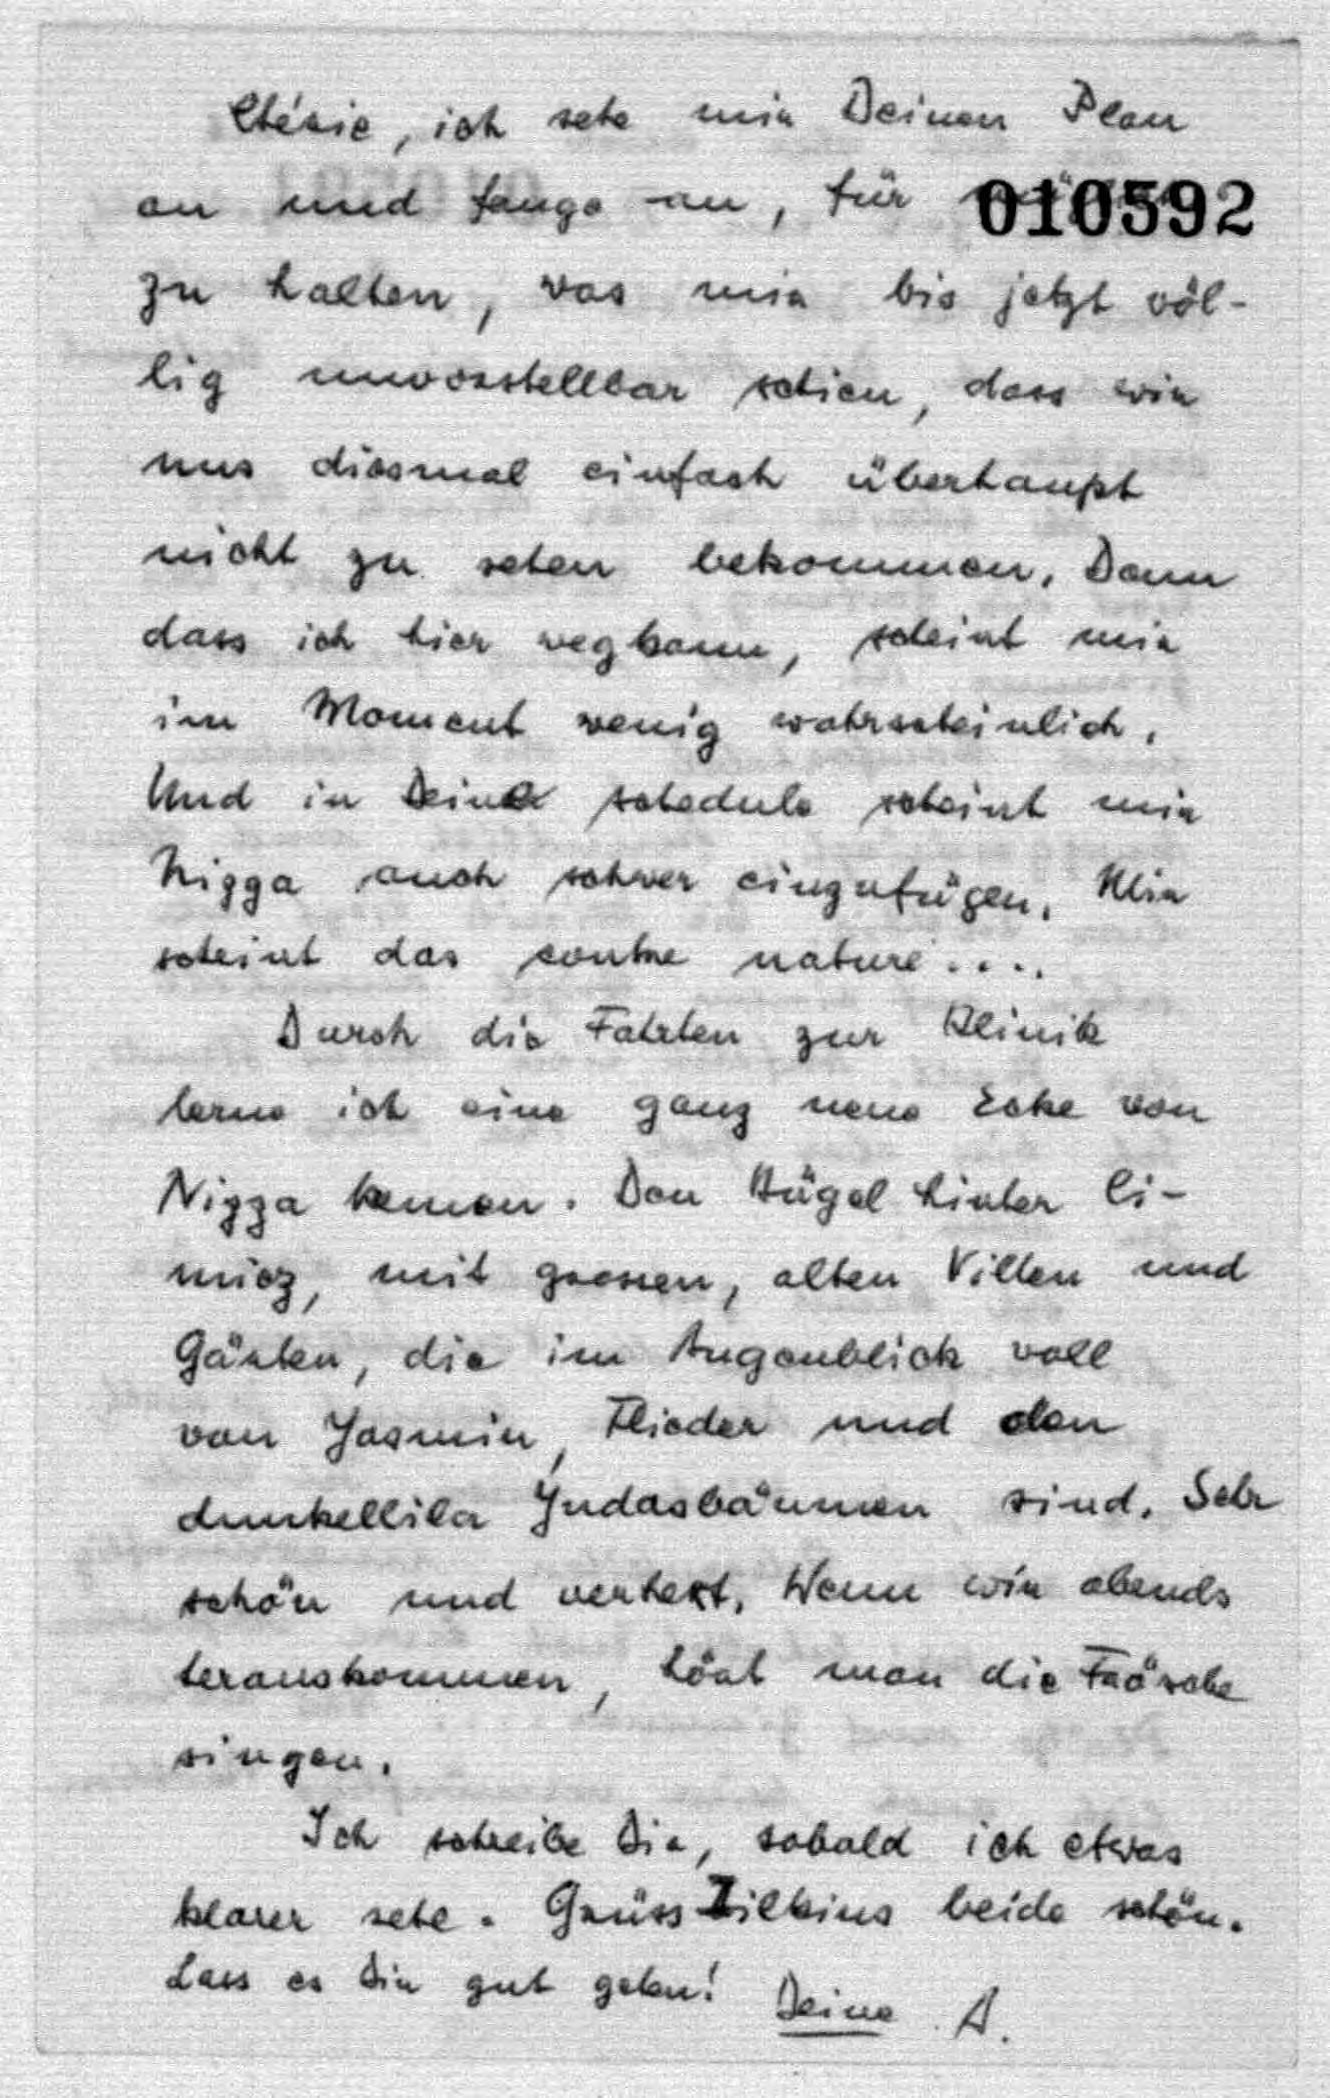 Chérie, ich sehe mir Deinen Plan
an und fange an, für
010592
zu halten, was mir bis jetzt völ-
lig unvorstellbar schien, dass wir
uns diesmal einfach überhaupt
nicht zu sehen bekommen. Denn
dass ich hier wegkann, scheint mir
im Moment wenig wahrscheinlich.
Und in Deine schedule scheint mir
Nizza auch schwer einzufügen. Mir
scheint das contre nature....
Durch die Fahrten zur Klinik
lerne ich eine ganz neue Ecke von
Nizza kennen. Den Hügel hinter Ci-
miez, mit grossen, alten Villen und
Gärten, die im Augenblick voll
von Jasmin, Flieder und den
dunkellila Judasbäumen sind. Sehr
schön und verhext. Wenn wir abends
herauskommen, hört man die Frösche
singen.
Ich schreibe Dir, sobald ich etwas
klarer sehe. Grüss beide schön.
Lass es Dir gut gehen! Deine A.